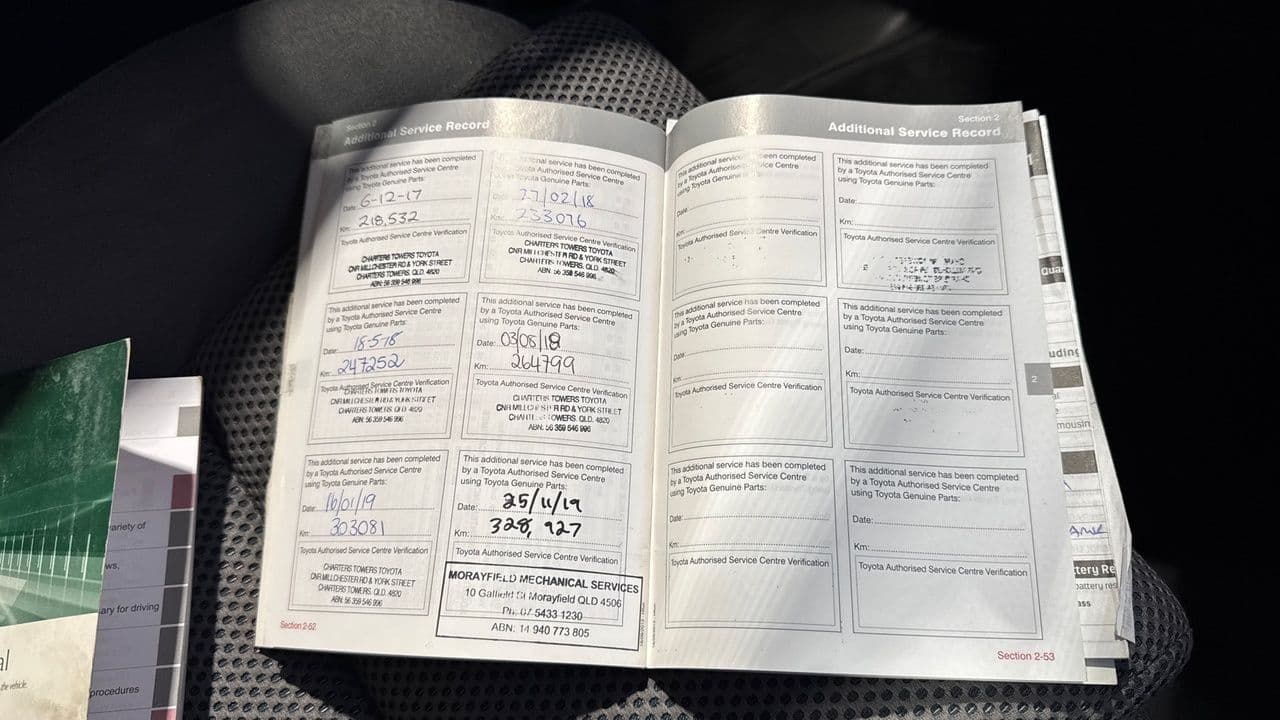 Section 2
Additional Service Record
This additional service has been completed
by a Toyota Authorised Service Centre
using Toyota Genuine Parts:
Date: 6-12-17
Km: 218,532
Toyota Authorised Service Centre Verification
CHARTERS TOWERS TOYOTA
CNR MILLCHESTER RD & YORK STREET
CHARTERS TOWERS. QLD. 4820
ABN: 56 359 546 996
additional service has been completed
Toyota Authorised Service Centre
Toyota Genuine Parts:
27/02/18
Km: 233076
Toyota Authorised Service Centre Verification
CHARTERS TOWERS TOYOTA
CNR MILLCHESTER RD & YORK STREET
CHARTERS TOWERS. QLD. 4820
ABN: 56 359 546 996
This additional service has been completed
by a Toyota Authorised Service Centre
using Toyota Genuine Parts:
Date: 18-5-18
Km: 247252
Toyota Authorised Service Centre Verification
CHARTERS TOWERS TOYOTA
CNR MILLCHESTER RD & YORK STREET
CHARTERS TOWERS. QLD. 4820
ABN: 56 359 546 996
This additional service has been completed
by a Toyota Authorised Service Centre
using Toyota Genuine Parts:
Date: 03/08/18
Km: 264799
Toyota Authorised Service Centre Verification
CHARTERS TOWERS TOYOTA
CNR MILLCHESTER RD & YORK STREET
CHARTERS TOWERS. QLD. 4820
ABN: 56 359 546 996
This additional service has been completed
by a Toyota Authorised Service Centre
using Toyota Genuine Parts:
Date: 16/01/19
Km: 303081
Toyota Authorised Service Centre Verification
CHARTERS TOWERS TOYOTA
CNR MILLCHESTER RD & YORK STREET
CHARTERS TOWERS. QLD. 4820
ABN: 56 359 546 996
This additional service has been completed
by a Toyota Authorised Service Centre
using Toyota Genuine Parts:
Date: 25/11/19
Km: 328,927
Toyota Authorised Service Centre Verification
MORAYFIELD MECHANICAL SERVICES
10 St Morayfield QLD 4506
Ph: 07 5433 1230
ABN: 14 940 773 805
Section 2-52
Section 2
Additional Service Record
This additional service been completed
by a Toyota Authorised Service Centre
using Toyota Genuine
Date:
Km:
Toyota Authorised Service Centre Verification
This additional service has been completed
by a Toyota Authorised Service Centre
using Toyota Genuine Parts:
Date:
Km:
Toyota Authorised Service Centre Verification
This additional service has been completed
by a Toyota Authorised Service Centre
using Toyota Genuine Parts:
Date:
Km:
Toyota Authorised Service Centre Verification
This additional service has been completed
by a Toyota Authorised Service Centre
using Toyota Genuine Parts:
Date:
Km:
Toyota Authorised Service Centre Verification
This additional service has been completed
by a Toyota Authorised Service Centre
using Toyota Genuine Parts:
Date:
Km:
Toyota Authorised Service Centre Verification
This additional service has been completed
by a Toyota Authorised Service Centre
using Toyota Genuine Parts:
Date:
Km:
Toyota Authorised Service Centre Verification
2
Section 2-53
ariety of
ws,
ary for driving
al
the vehicle.
procedures
uding
mousin
ttery Re
battery res
ass